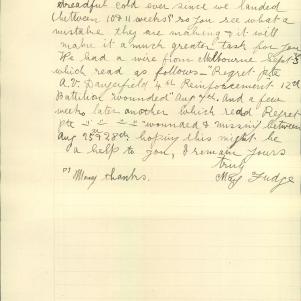 dreadful cold ever since we landed
(between 10 & 11 weeks) so you see what a
mistake they are making & it will
make it a much greater task for you
We had a wire from Melbourne Sept 3
which read as follows - "Regret pte
A.V. Dangerfield 4th Reinforcement 12th
Batallion "wounded" Aug 7th. And a few
weeks later another which read "Regret
pte - " - " - " - "wounded & missing between
Aug 25th & 28th hoping this might be
a help to you, I remain yours
truly
"Many thanks. May Fudge